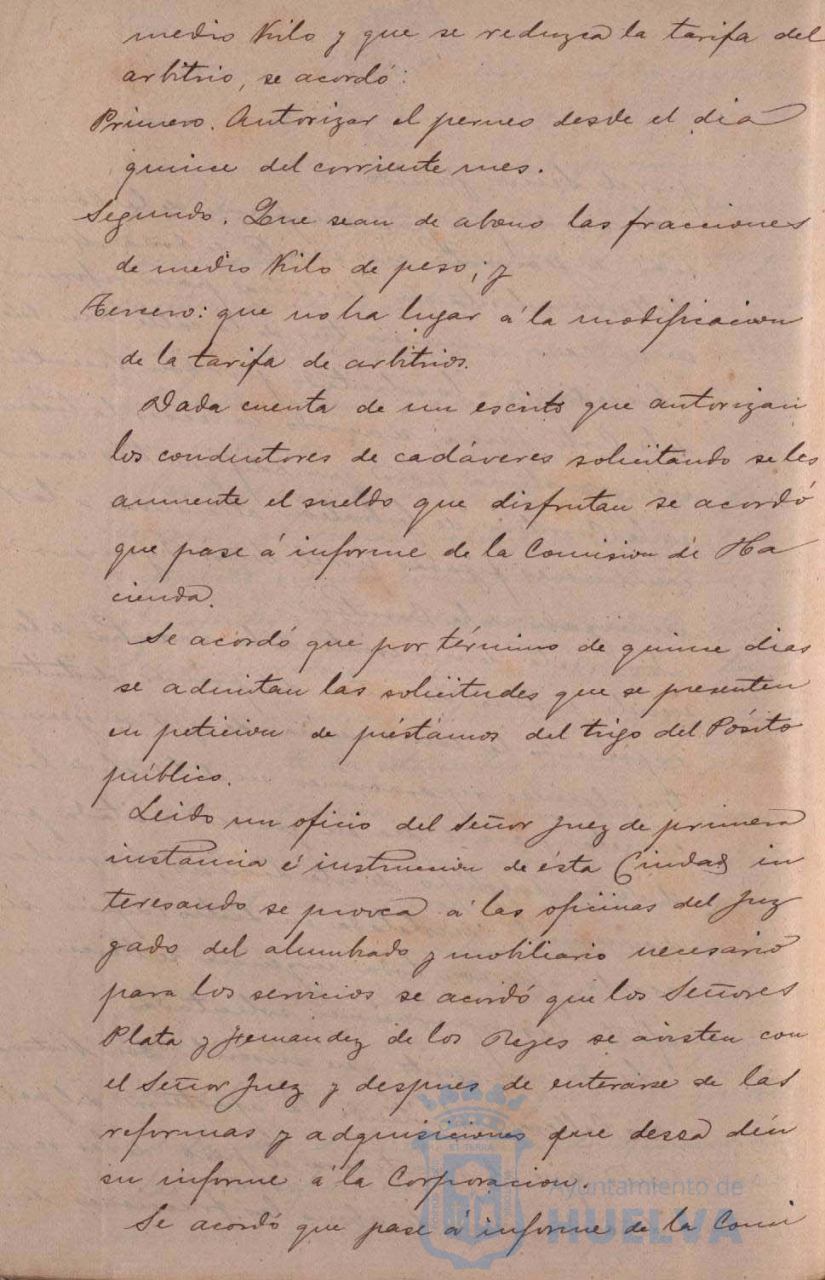 medio Kilo y que se reduzca la tarifa del
arbitrio, se acordó:
Primero. Autorizar el perneo desde el dia
quince del corriente mes.
Segundo. Que sean de abono las fracciones
de medio Kilo de peso; y
Tercero: que no ha lugar á la modificacion
de la tarifa de arbitrios.
Dada cuenta de un escrito que autorizan
los conductores de cadáveres solicitando se les
aumente el sueldo que disfrutan se acordó
que pase á informe de la Comision de Ha
cienda.
Se acordó que por término de quince dias
se admitan las solicitudes que se presenten
en peticion de préstamos del trigo del Pósito
público.
Leido un oficio del Señor Juez de primera
instancia é instruccion de ésta Ciudad in
teresando se provea á las oficinas del Juz
gado del alumbrado y mobiliario necesario
para los servicios se acordó que los Señores
Plata y Hernandez de los Reyes se avisten con
el Señor Juez y despues de enterarse de las
reformas y adquisiciones que desea dén
su informe á la Corporacion.
Se acordó que pase á informe de la Comi
Ayuntamiento de
HUELVA